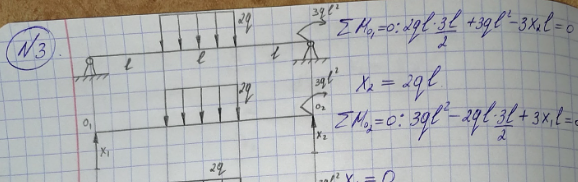 N3
2q
3ql²
l
l
l
ΣM₀₁=0: 2ql·3l/2 + 3ql² - 3x₂l = 0
x₂ = 2ql
2q
3ql²
O₁
O₂
x₁
x₂
ΣM₀₂=0: 3ql² - 2ql·3l/2 + 3x₁l =
2q
x₁ = 0